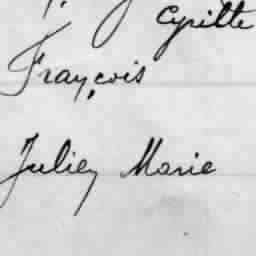 Cyrille
François
Julien Marie